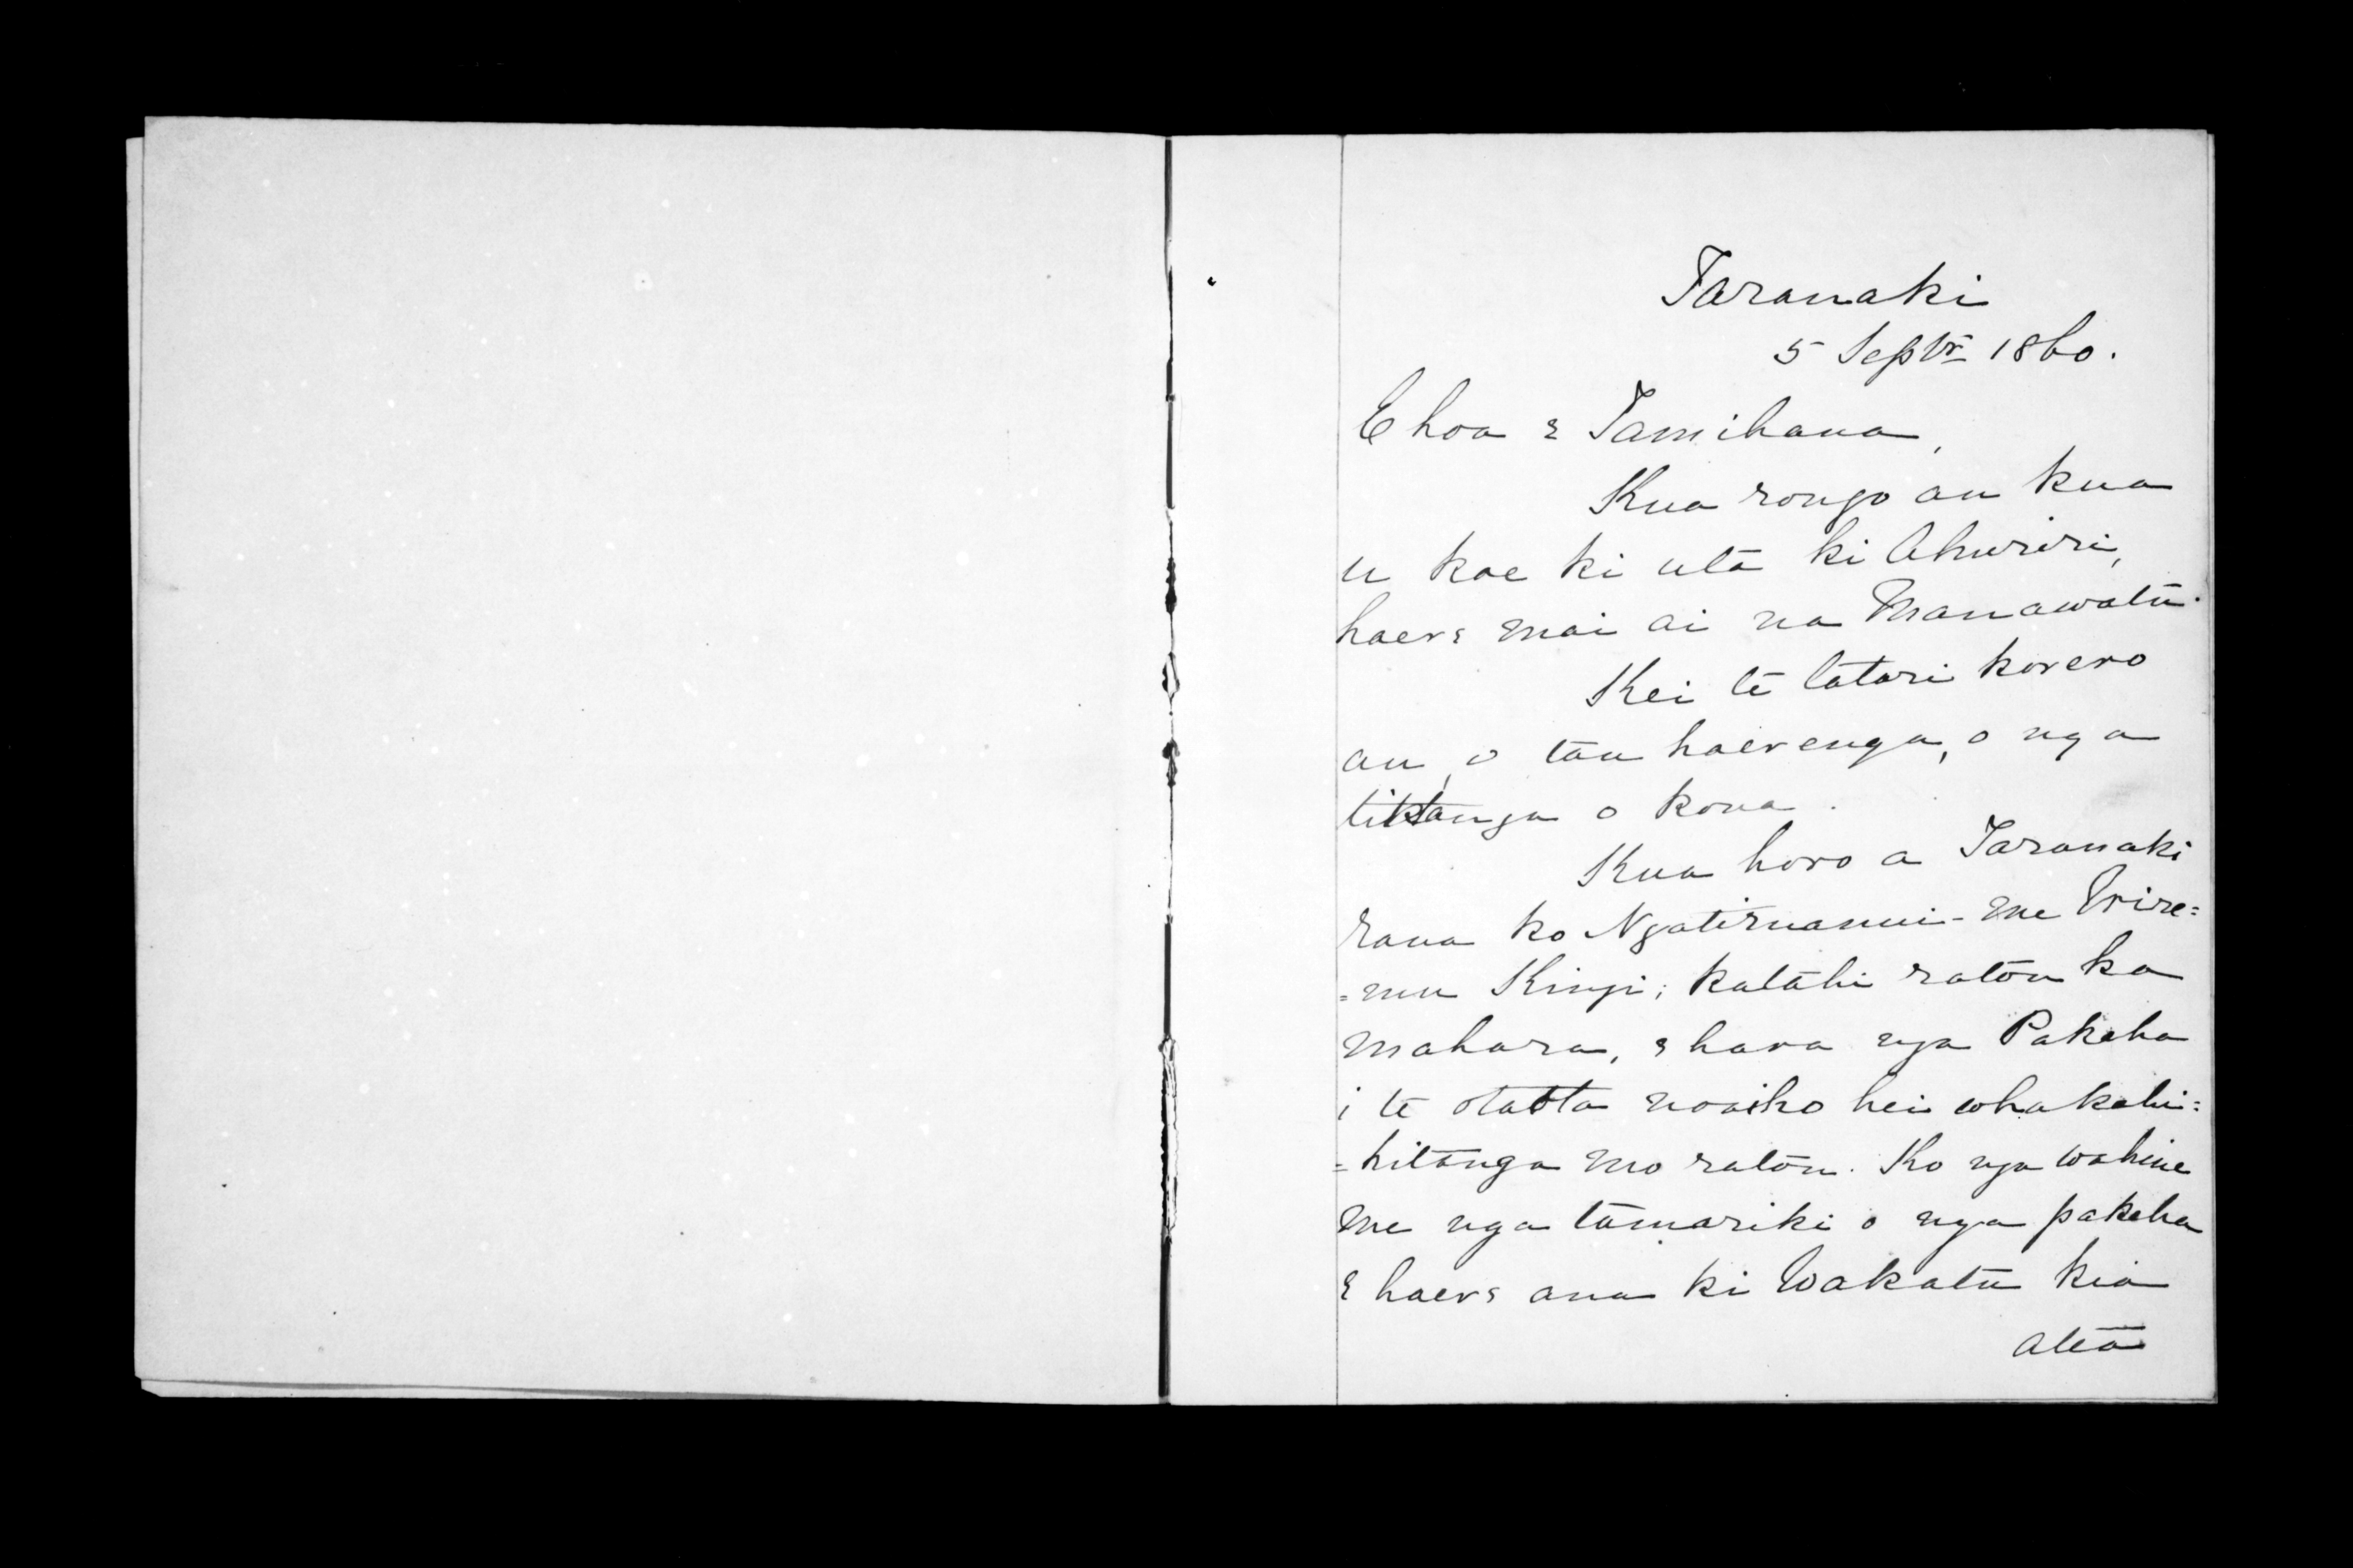 Taranaki
5 Septr 1860.
E hoa e Tamihana,
Kua rongo au kua
u koe ki uta ki Ahuriri,
haere mai ai na Manawatu.
Kei te tatari korero
au, o tau haerenga, o nga
tikanga o kona.
Kua horo a Taranaki
raua ko Ngatiruanui - me Wire=
=mu Kingi; katahi ratou ka
mahara, e hara nga Pakeha
i te otaota noaiho hei whakahi=
=hitanga mo ratou. Ko nga wahine
me nga tamariki o nga pakeha
e haere ana ki Wakatu kia
atea